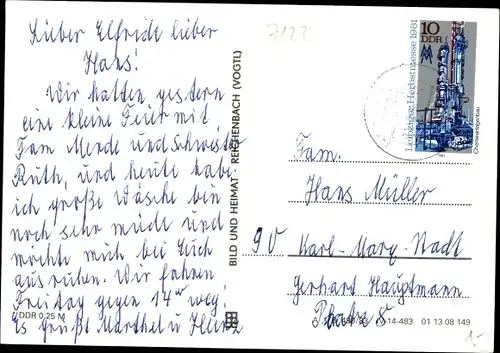 Lieber Elfride lieber
Hans!
Wir hatten gestern
eine kleine Feier mit
Fam Merde und Schwester
Ruth, und heute habe
ich große Wäsche bin
noch sehr müde und
möchte mich bei Euch
ausruhen. Wir fahren
Freitag gegen 14 weg!
Es grüßt Marthel u Heinz
DDR 0,25 M
BILD UND HEIMAT REICHENBACH (VOGTL)
7122
10
DDR
MM
Leipziger Herbstmesse 1981
Chemieanlagenbau
Fam.
Hans Müller
90 Karl-Marx-Stadt
Gerhard Hauptmann
Platz 5
14-483 01 13 08 149
1,-